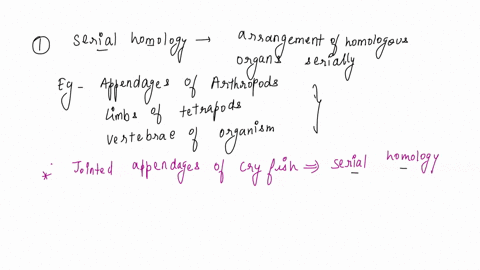 ① serial homology → arrangement of homologous
organs serially
Eg - Appendages of Arthropods
Limbs of tetrapods
vertebrae of organism
* Jointed appendages of cry fish ⇒ serial homology